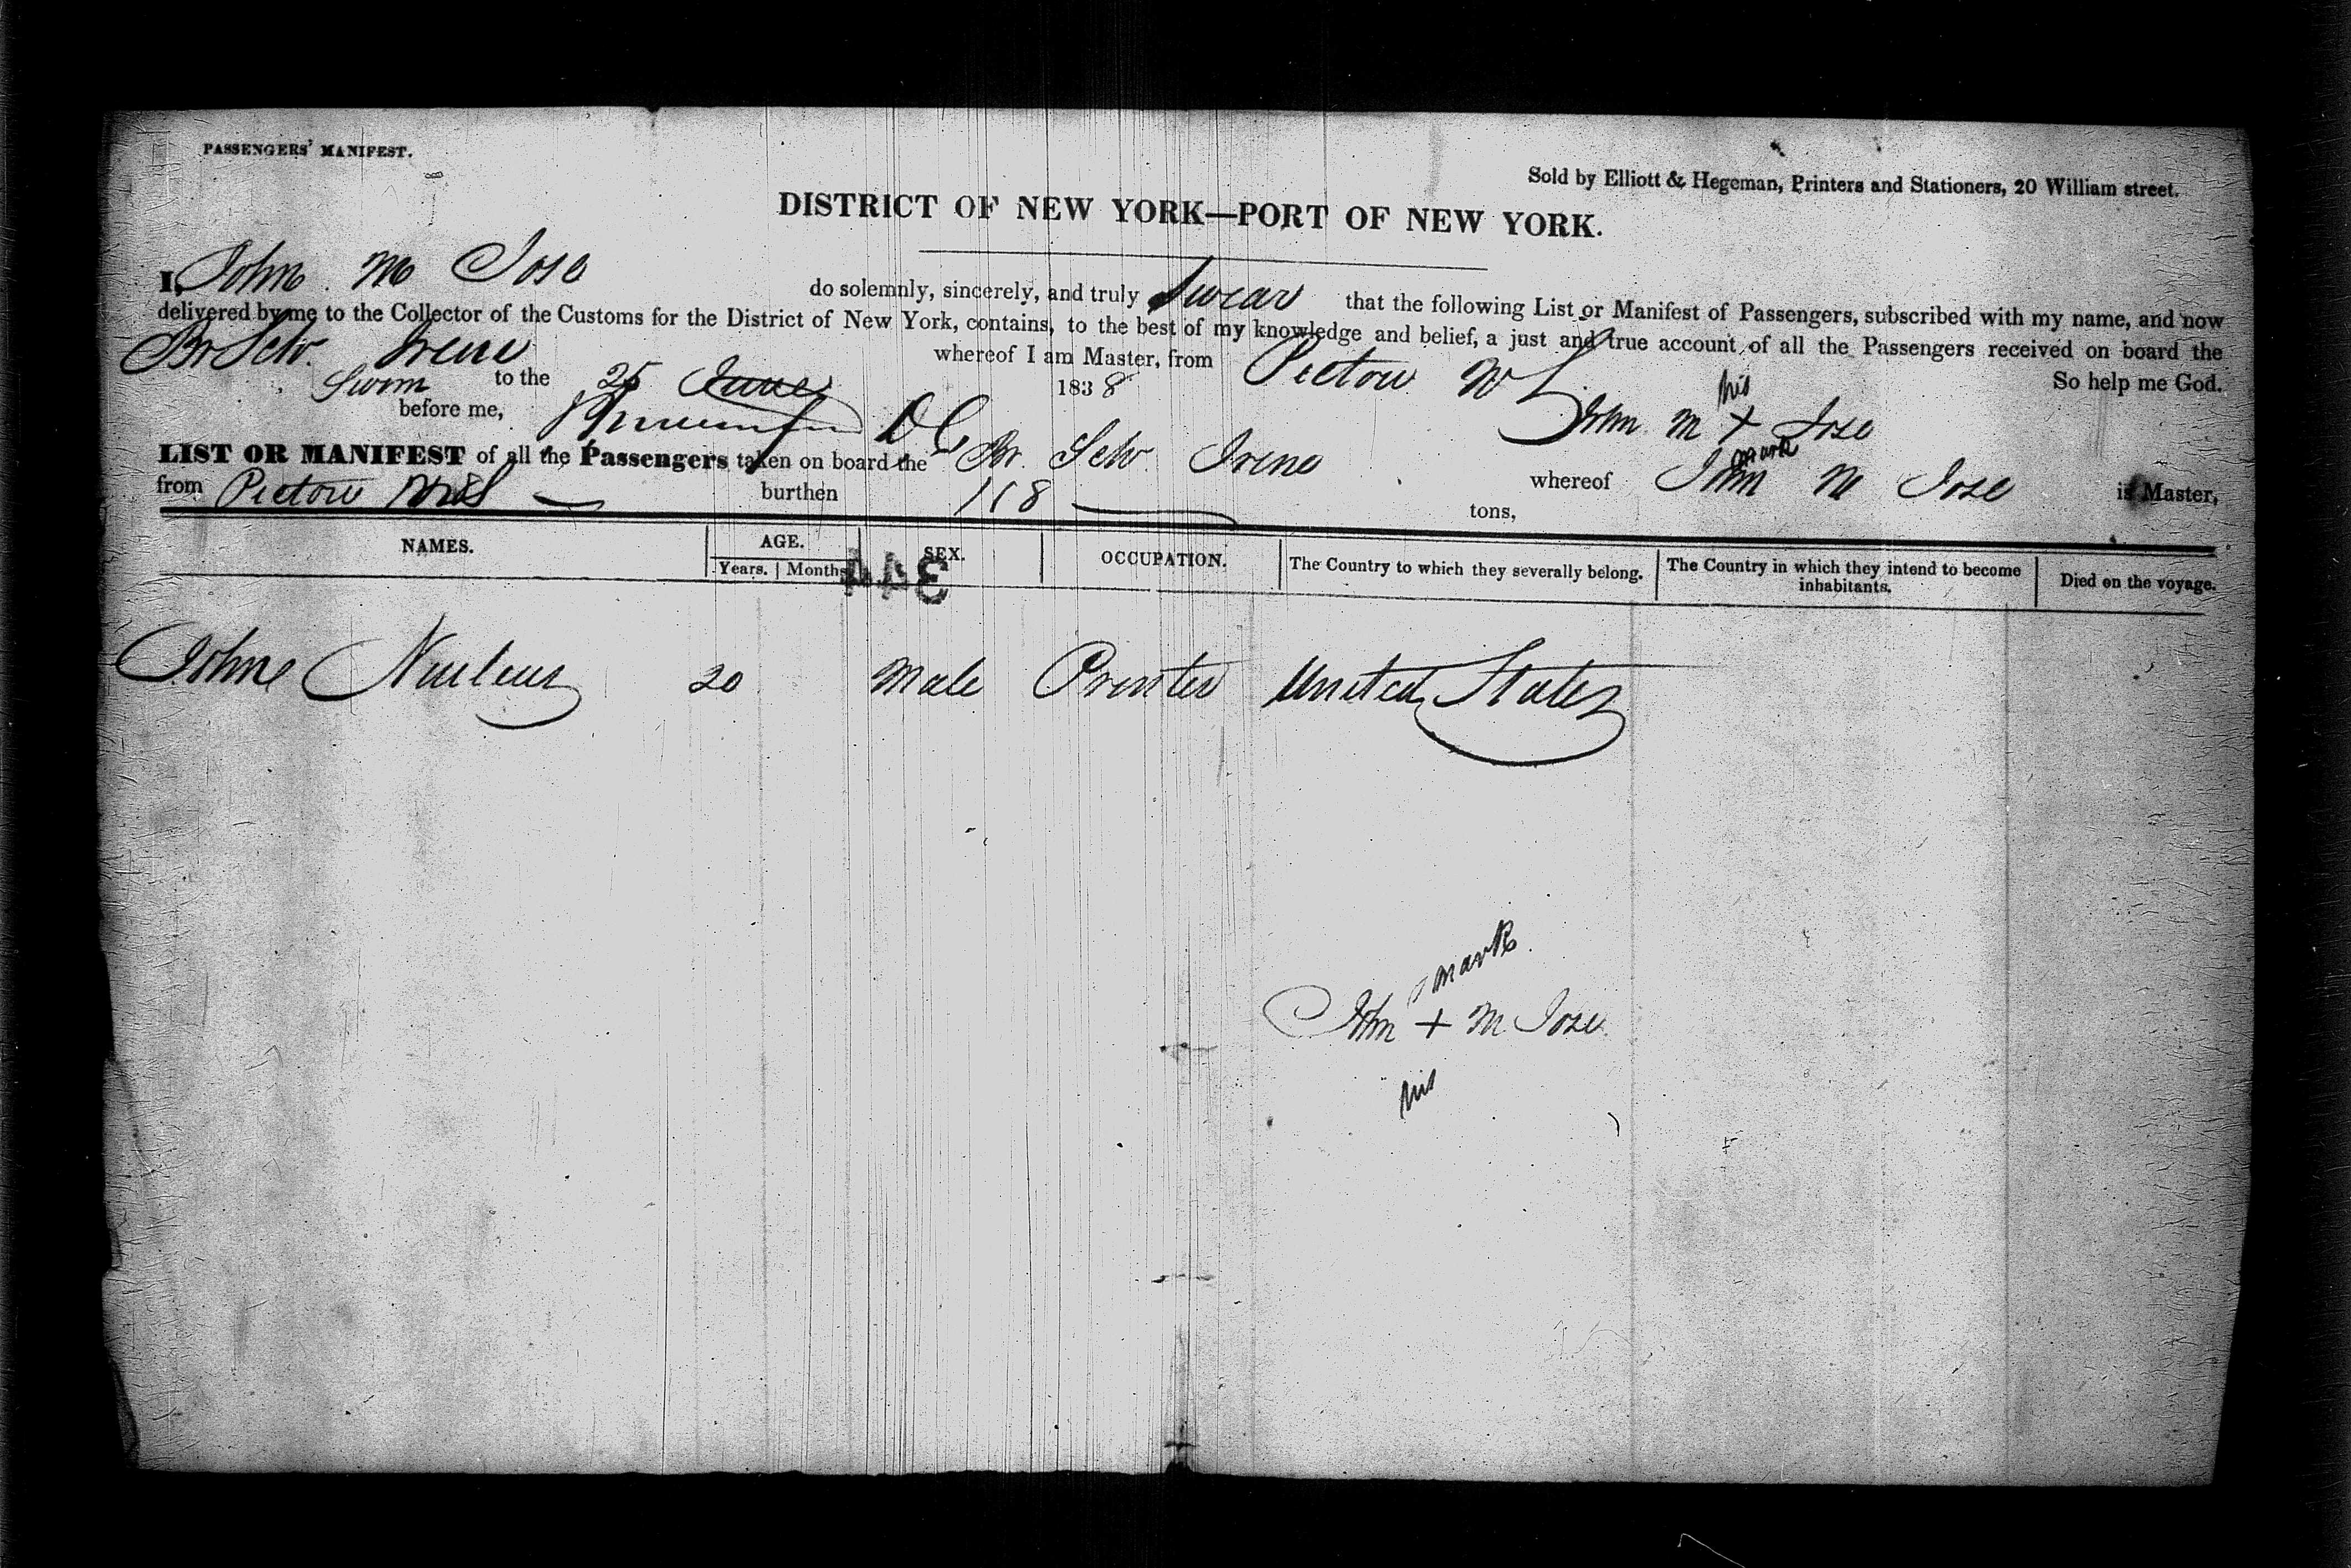 PASSENGERS' MANIFEST.
Sold by Elliott & Hegeman, Printers and Stationers, 20 William street.
DISTRICT OF NEW YORK—PORT OF NEW YORK.
I, John M Jose do solemnly, sincerely, and truly Swear that the following List or Manifest of Passengers, subscribed with my name, and now
delivered by me to the Collector of the Customs for the District of New York, contains, to the best of my knowledge and belief, a just and true account of all the Passengers received on board the
Br Schr. Irene whereof I am Master, from Pictou N S
Sworn to the 25 June 1838 So help me God.
before me, DC
his
John M + Jose
mark
LIST OR MANIFEST of all the Passengers taken on board the Br. Schr. Irene whereof John M Jose is Master,
from Pictou NS burthen 118 tons,
NAMES. AGE. SEX. OCCUPATION. The Country to which they severally belong. The Country in which they intend to become inhabitants. Died on the voyage.
Years. Months
344
John 20 Male Printer United States
mark
John + M Jose
his